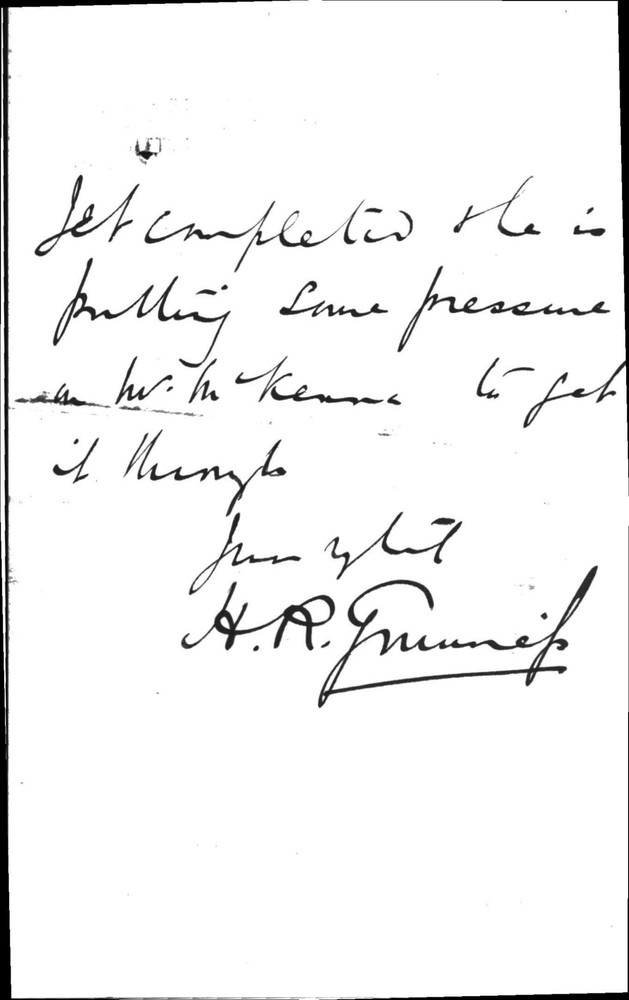 yet completed & he is
putting some pressure
on Mr. McKenna to get
it through
Yours
H. R. Guinness